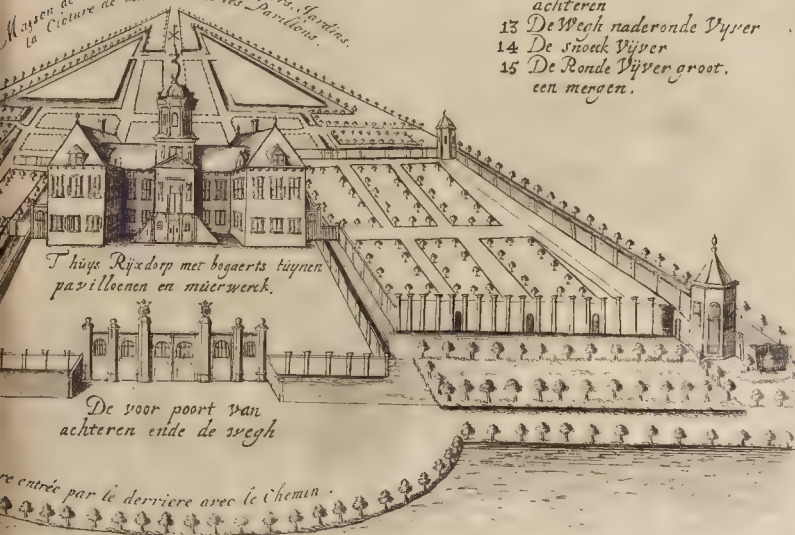 Mayson de
ers, Jardins,
la Cloture de
les Pavillons.
achteren
13 De Wegh naderonde Vyver
14 De snoeck Vijver
15 De Ronde Vijver groot.
een mergen.
T hüys Rijxdorp met bogaerts tüynen
pavilloenen en müerwerck.
De voor poort van
achteren ende de wegh
re entrée par le derriere avec le Chemin.